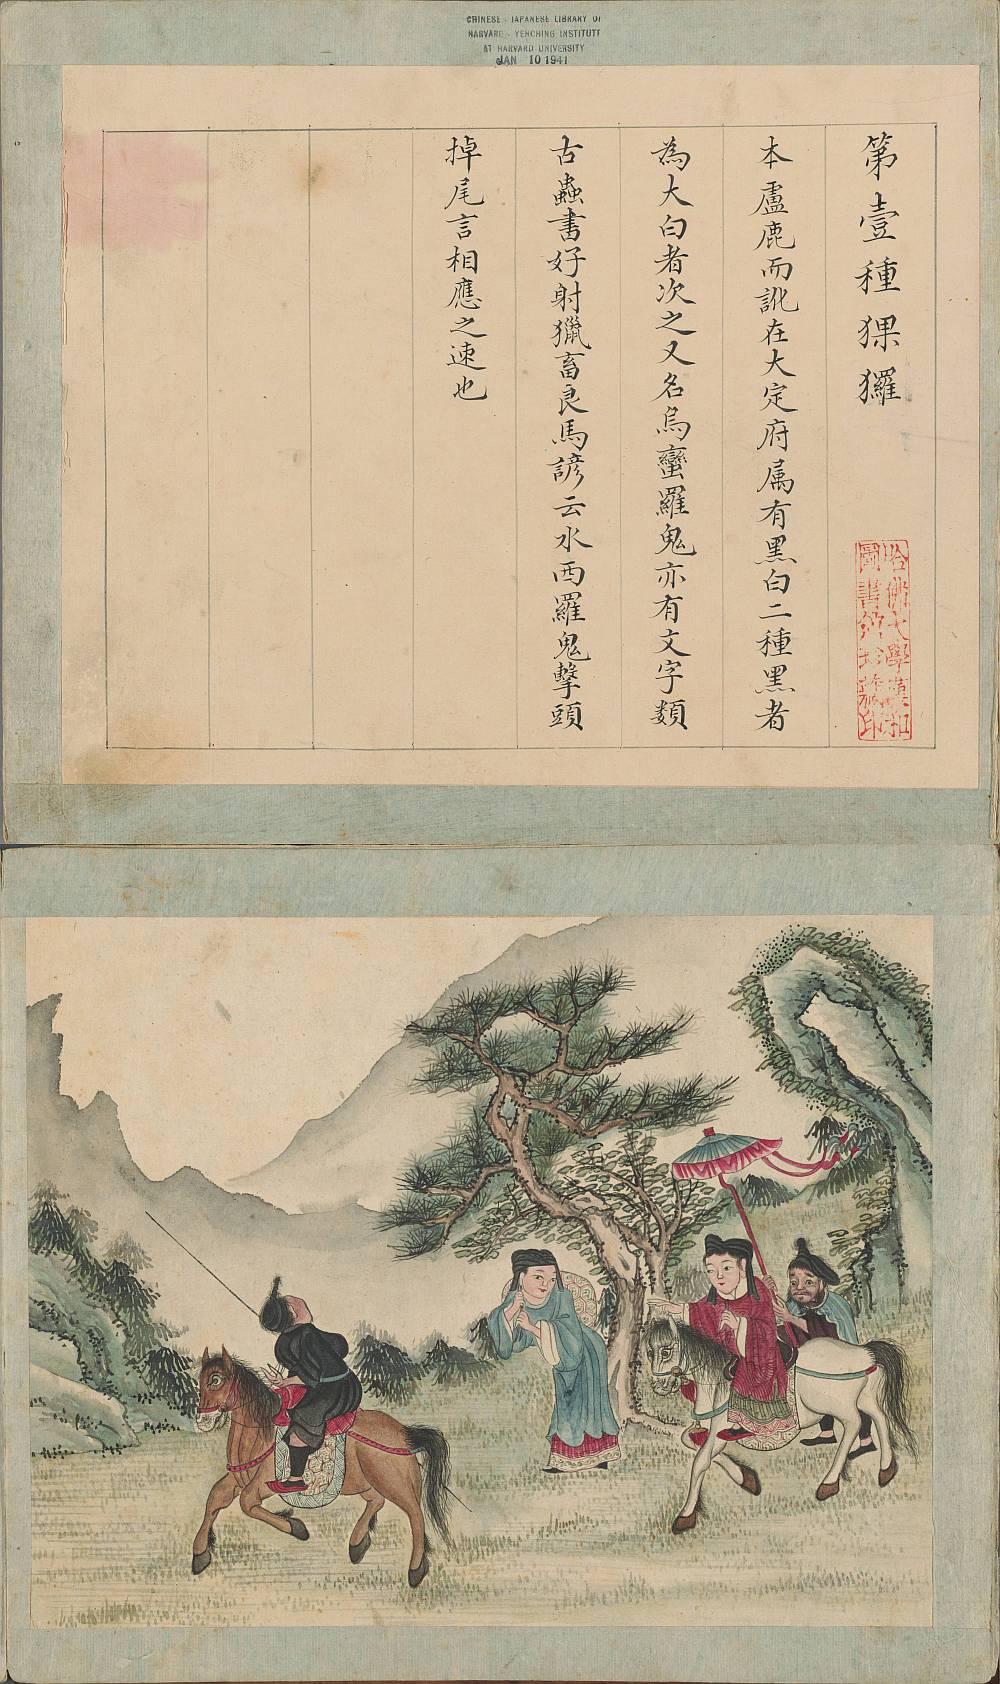 CHINESE - JAPANESE LIBRARY OF
HARVARD - YENCHING INSTITUTE
AT HARVARD UNIVERSITY
JAN 10 1941
第壹種猓玀
本盧鹿而訛在大定府属有黑白二種黑者
為大白者次之又名烏蠻羅鬼亦有文字類
古蟲書好射獵畜良馬諺云水西羅鬼擊頭
掉尾言相應之速也
哈佛大學漢和
圖書館珍藏印